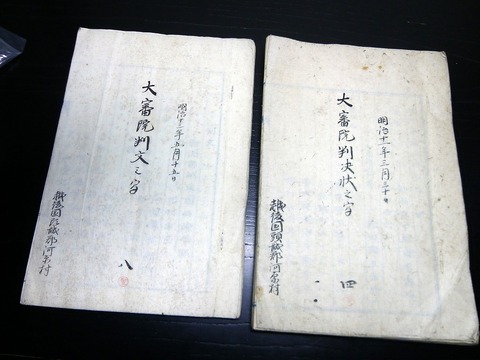 明治十一年三月三十日
大審院判决状之写
四
越後国頸城郡河 村
明治十二年五月十五日
大審院判文之写
八
越後国頸城郡河 村